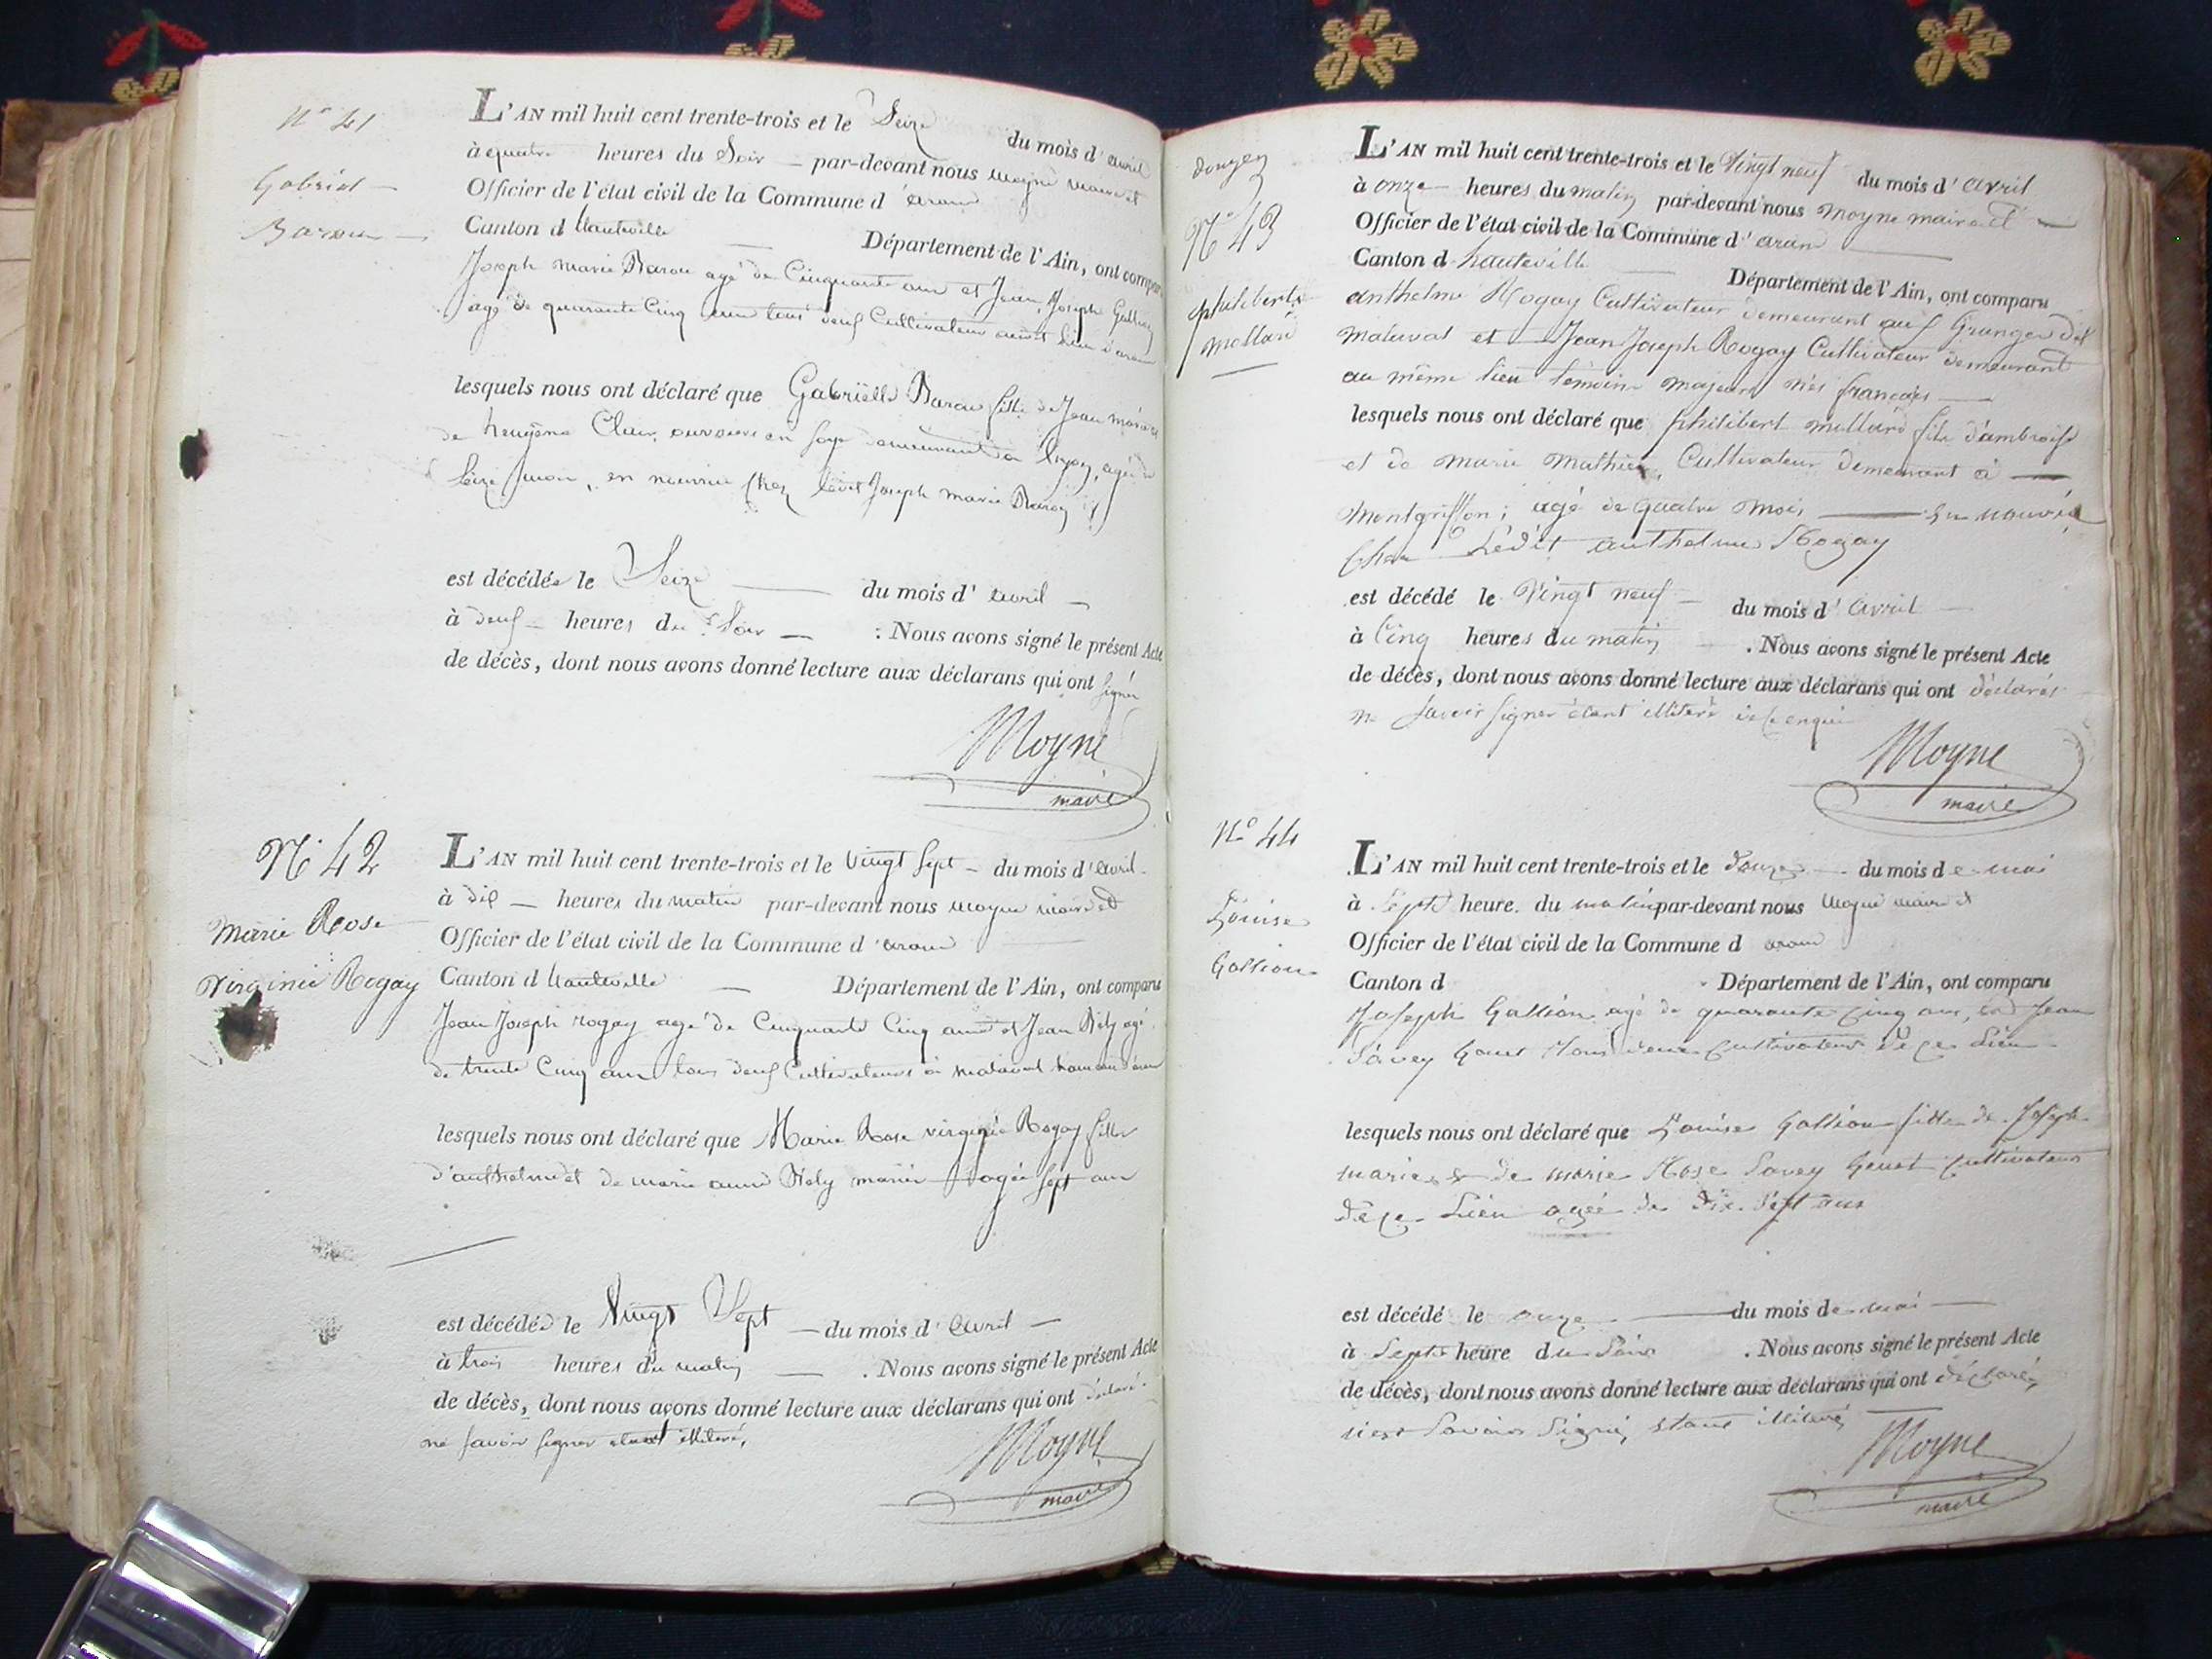 N° 41
Gabriel
Barou
L'AN mil huit cent trente-trois et le Seize du mois d'avril
à quatre heures du Soir par-devant nous moyne maire et
Officier de l'état civil de la Commune d'aran
Canton d hauteville Département de l'Ain, ont comparu
Joseph marie Barou agé de Cinquante ans et Jean Joseph
agé de quarante Cinq ans tous deuf Cultivateurs
lesquels nous ont déclaré que Gabriëlle Barou fille de Jean
de heugène Clair, en soye demeurant a lyon, agée de
Seize mois, en nourrice chez ledit Joseph marie Barou
est décédée le Seize du mois d'avril
à deuf heures du Soir . Nous avons signé le présent Acte
de décès, dont nous avons donné lecture aux déclarans qui ont signér
Moyne
maire
N° 42
Marie Rose
Virginie Rogay
L'AN mil huit cent trente-trois et le vingt sept du mois d'avril
à dif heures du matin par-devant nous moyne maire et
Officier de l'état civil de la Commune d'aran
Canton d hauteville Département de l'Ain, ont comparu
Jean Joseph rogay agé de Cinquante Cinq ans et Jean Nely agé
de trente Cinq ans tous deuf Cultivateurs à malaval hameau d'aran
lesquels nous ont déclaré que Marie Rose virginie Rogay fille
d'anthelme et de marie anne Nely mariés agée sept ans
est décédée le Vingt Sept du mois d'avril
à trois heures du matin . Nous avons signé le présent Acte
de décès, dont nous avons donné lecture aux déclarans qui ont déclaré
ne savoir signer etant illiteré,
Moyne
maire
N° 43
philibert
mollard
L'AN mil huit cent trente-trois et le Vingt neuf du mois d'avril
à onze heures du matin par-devant nous moyne maire et
Officier de l'état civil de la Commune d'aran
Canton d hauteville Département de l'Ain, ont comparu
anthelme Rogay Cultivateur demeurant auf Granges de
malaval et Jean Joseph Rogay Cultivateur demeurant
au même lieu témoins majeurs nés français
lesquels nous ont déclaré que philibert mollard fils d'ambroise
et de marie mathieu Cultivateur demeurant à
Montgriffon; agé de quatre mois en nourrice
Chez Lédit anthelme Rogay
est décédé le Vingt neuf du mois d'Avril
à Cinq heures du matin . Nous avons signé le présent Acte
de décès, dont nous avons donné lecture aux déclarans qui ont déclarés
ne savoir signer étant illiterè
Moyne
maire
N° 44
Louise
Gallion
L'AN mil huit cent trente-trois et le douze du mois de mai
à Sept heure. du matin par-devant nous moyne maire et
Officier de l'état civil de la Commune d aran
Canton d Département de l'Ain, ont comparu
Joseph Gallion agé de quarante cinq ans, et Jean
Savey Gouet tous deux cultivateurs de ce Lieu
lesquels nous ont déclaré que Louise Gallion fille de Joseph
marie & de marie Rose Savey Gouet cultivateurs
de ce Lieu agée de Dix sept ans
est décédé le onze du mois de mai
à Sept heure du Soir . Nous avons signé le présent Acte
de décès, dont nous avons donné lecture aux déclarans qui ont déclaré,
Savoir Signé, etant illiteré,
Moyne
maire